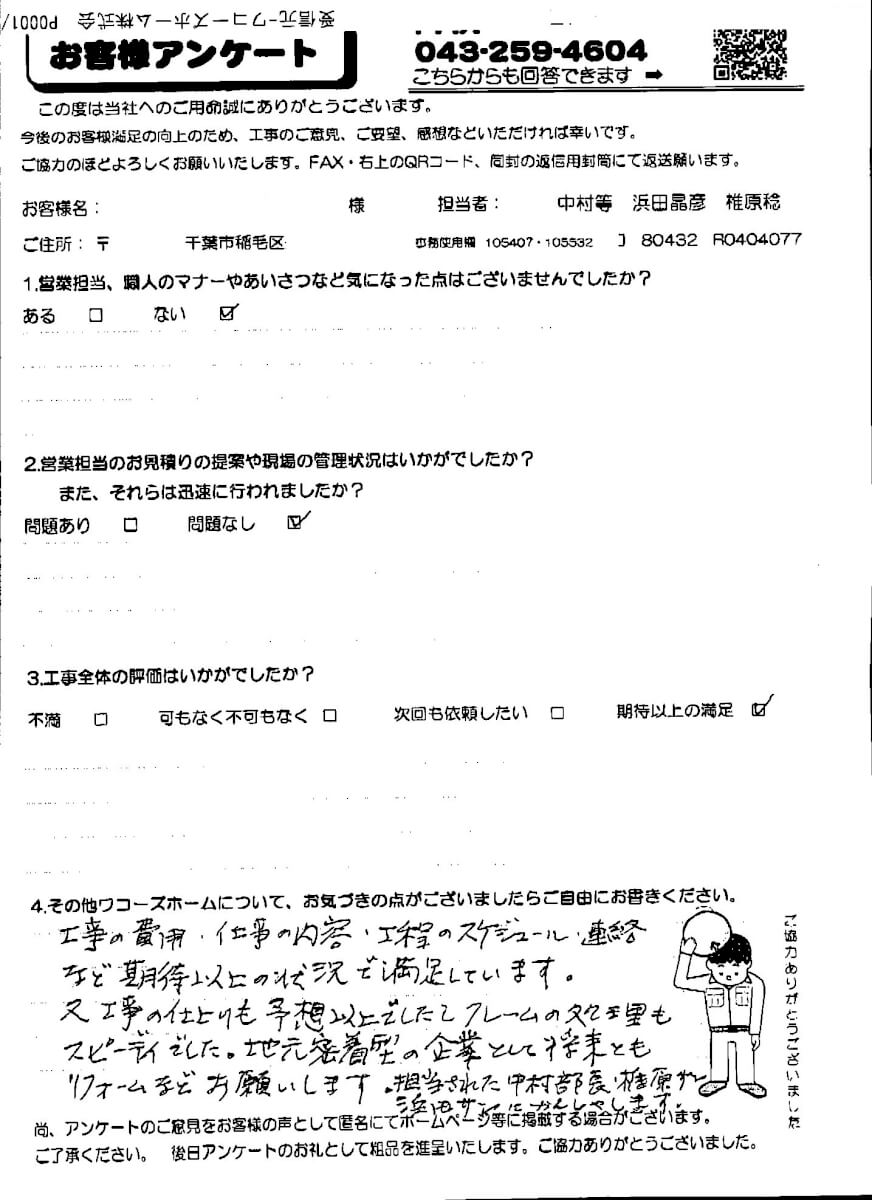 受信元-ワコーズホーム株式会 P0001/
お客様アンケート
043-259-4604
こちらからも回答できます ➡
この度は当社へのご用命誠にありがとうございます。
今後のお客様満足の向上のため、工事のご意見、ご要望、感想などいただければ幸いです。
ご協力のほどよろしくお願いいたします。FAX・右上のQRコード、同封の返信用封筒にて返送願います。
お客様名： 様 担当者： 中村等 浜田晶彦 椎原稔
ご住所：〒 千葉市稲毛区 事務使用欄 105407・105532 J 80432 R0404077
1.営業担当、職人のマナーやあいさつなど気になった点はございませんでしたか？
ある □ ない ☑
2.営業担当のお見積りの提案や現場の管理状況はいかがでしたか？
また、それらは迅速に行われましたか？
問題あり □ 問題なし ☑
3.工事全体の評価はいかがでしたか？
不満 □ 可もなく不可もなく □ 次回も依頼したい □ 期待以上の満足 ☑
4.その他ワコーズホームについて、お気づきの点がございましたらご自由にお書きください。
工事の費用・仕事の内容・工程のスケジュール・連絡
など期待以上の状況で満足しています。
又工事の仕上りも予想以上でした クレームの処理も
スピーディでした。地元密着型の企業として将来とも
リフォームなどお願いします。担当された中村部長・椎原サン
浜田サンにかんしゃします。
ご協力ありがとうございました
尚、アンケートのご意見をお客様の声として匿名にてホームページ等に掲載する場合がございます。
ご了承ください。 後日アンケートのお礼として粗品を進呈いたします。ご協力ありがとうございました。